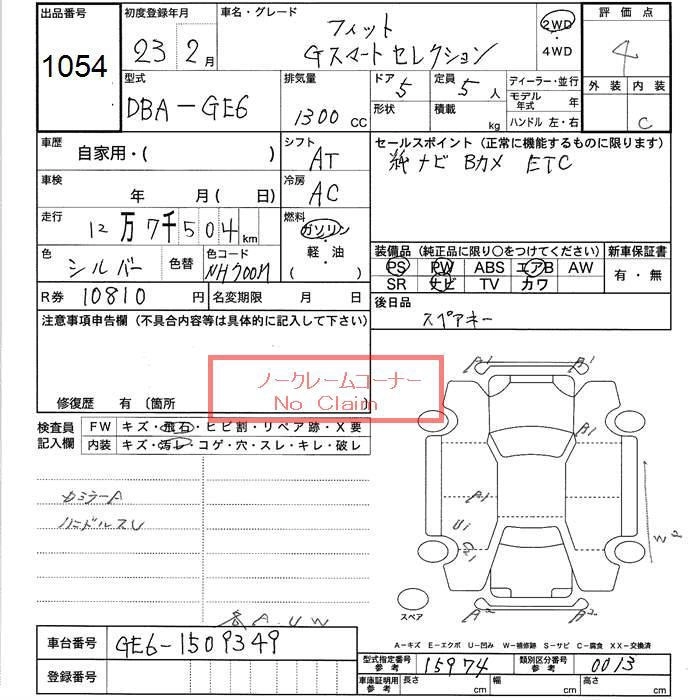 出品番号 初度登録年月 車名・グレード 評価点
1054 23 2月 フィット 2WD 4
Gスマートセレクション ・ 4WD
型式 排気量 ドア 5 定員 5人 ディーラー・並行 外装 内装
DBA-GE6 1300 CC 形状 積載 kg モデル年式 年 C
ハンドル 左・右
車歴 自家用・( ) シフト AT セールスポイント (正常に機能するものに限ります)
紙 ナビ Bカメ ETC
車検 年 月( 日) 冷房 AC
走行 12万7千504km 燃料 ガソリン
・
軽・油
( )
色 シルバー 色替 色コード NH700M
装備品 (純正品に限り○をつけてください) 新車保証書
PS PW ABS エアB AW 有・無
SR ナビ TV カワ
R券 10810円 名変期限 月 日 後日品
スペアキー
注意事項申告欄 (不具合内容等は具体的に記入して下さい)
ノークレームコーナー
No Claim
修復歴 有 (箇所 )
検査員記入欄 FW キズ・飛石・ヒビ割・リペア跡・X要
内装 キズ・汚レ・コゲ・穴・スレ・キレ・破レ
A1 A1
B1
A1
U1
WP
ハンドルスレ
スペア
A2 A2
A.U.W
A-キズ E-エクボ U-凹み W-補修跡 S-サビ C-腐食 XX-交換済
車台番号 GE6-1509349
型式指定番号 参考 15974 類別区分番号 参考 0013
登録番号 車庫証明用 参考 長さ cm 幅 cm 高さ cm